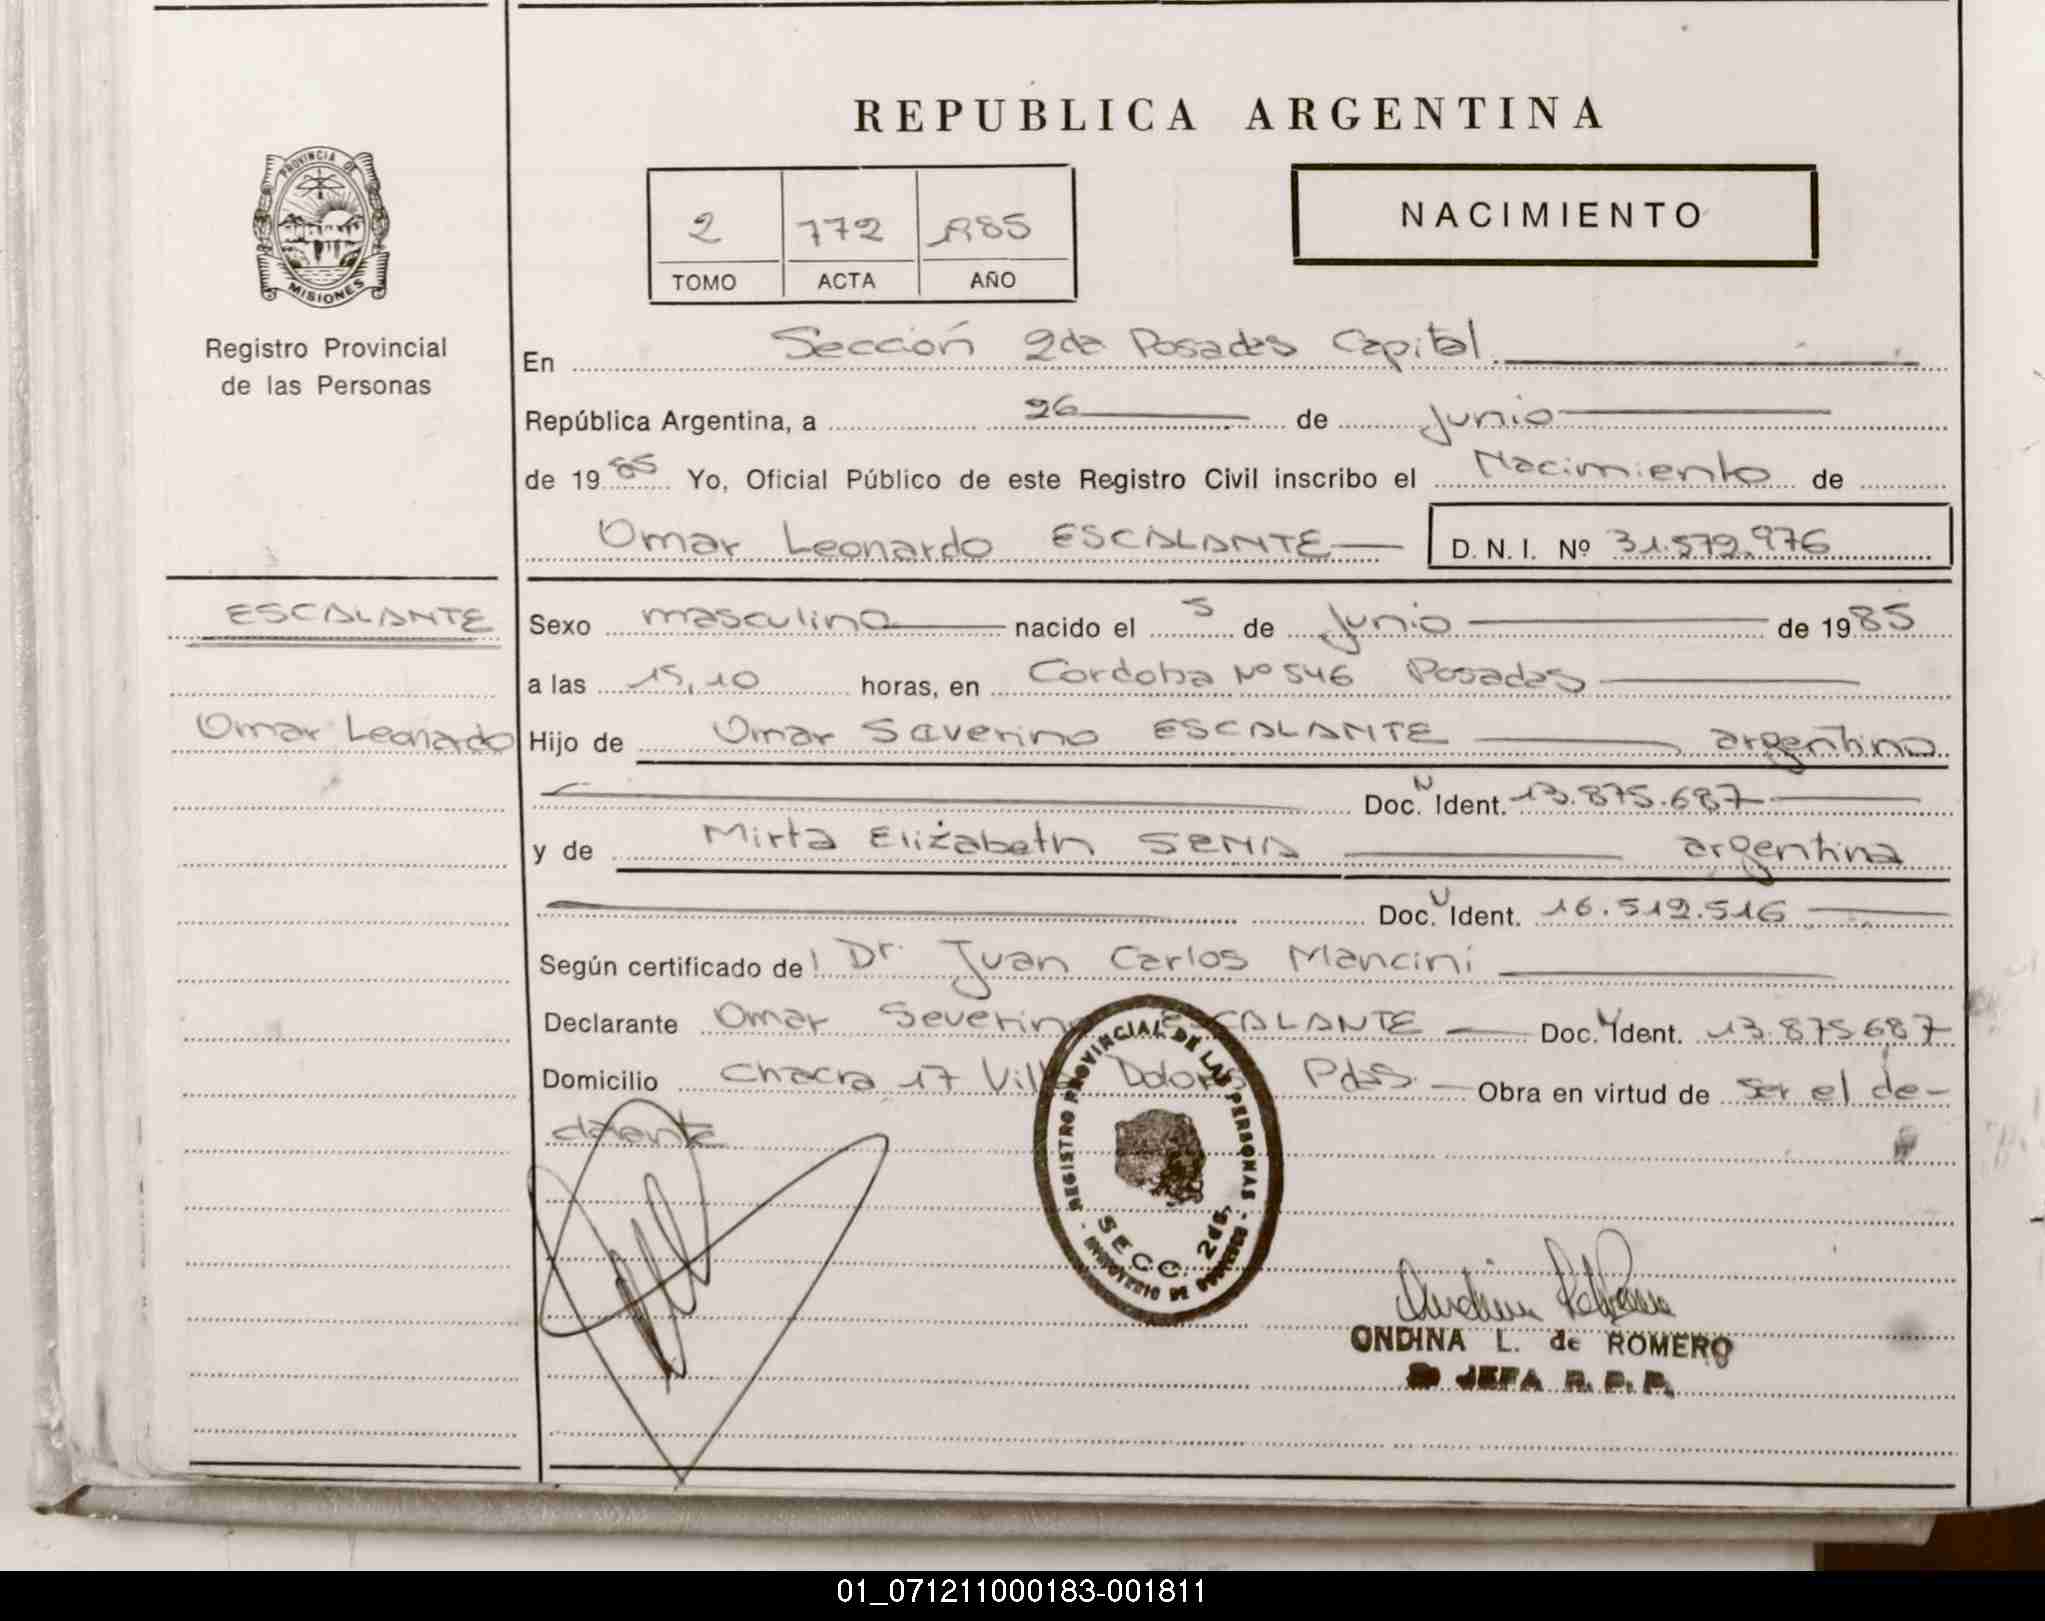 REPUBLICA ARGENTINA
PROVINCIA DE
MISIONES
Registro Provincial
de las Personas
2 772 1985
TOMO ACTA AÑO
NACIMIENTO
En Sección 2da Posadas Capital.
República Argentina, a 26 de Junio
de 1985 Yo, Oficial Público de este Registro Civil inscribo el Nacimiento de
Omar Leonardo ESCALANTE D. N. I. Nº 31.572.976
ESCALANTE
Omar Leonardo
Sexo masculino nacido el 5 de Junio de 1985
a las 15,10 horas, en Cordoba Nº 546 Posadas
Hijo de Omar Saverino ESCALANTE argentino
Doc. N Ident. 13.875.687
y de Mirta Elizabeth SENA argentina
Doc. Ident. 16.512.516
Según certificado del Dr. Juan Carlos Mancini
Declarante Omar Severino ESCALANTE Doc. Ident. 13.875.687
Domicilio Chacra 17 Villa Dolores Pdas. Obra en virtud de ser el de-
clarante
REGISTRO PROVINCIAL DE LAS PERSONAS
SECC. 2da.
MINISTERIO DE GOBIERNO
ONDINA L. de ROMERO
JEFA R. P. P.
01_071211000183-001811